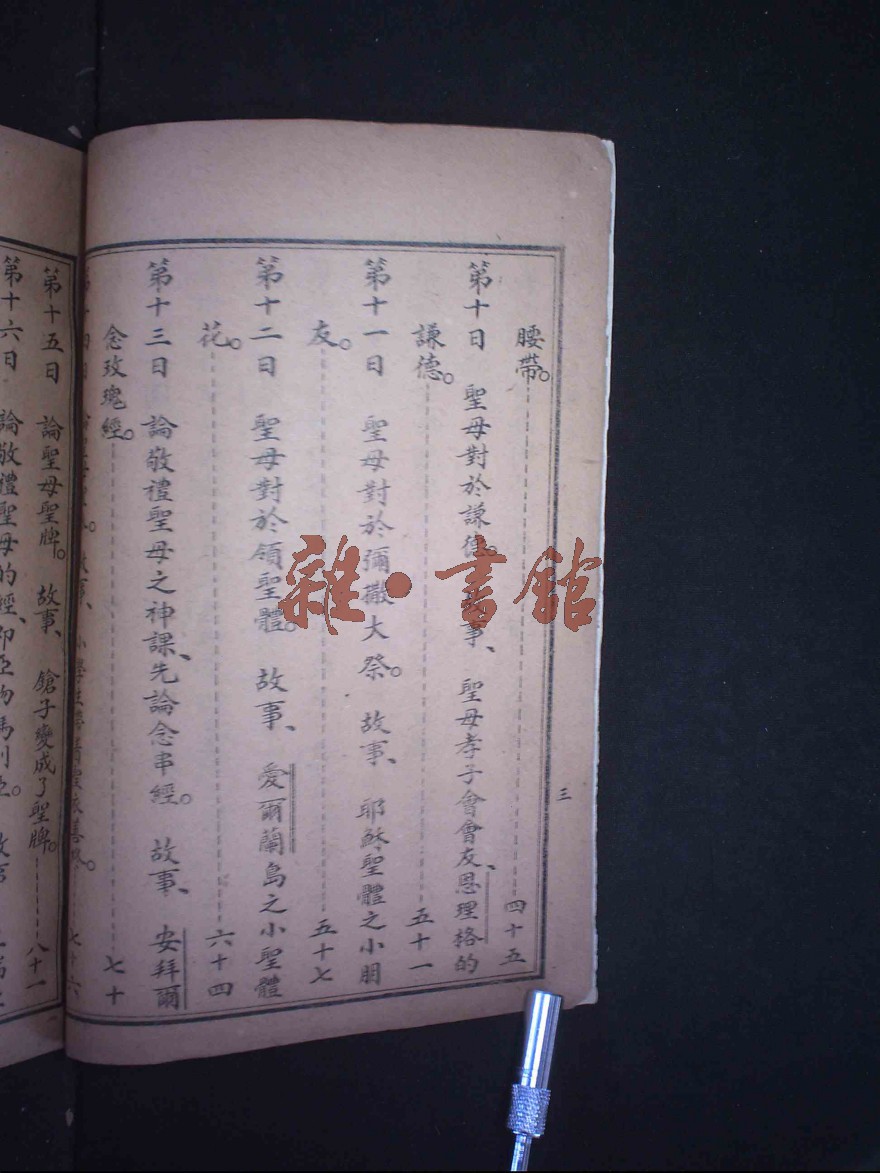 腰帶。 四十五
第十日 聖母對於謙德。 故事、 聖母孝子會會友、恩理格的
謙德。 五十一
第十一日 聖母對於彌撒大祭。 故事、 耶穌聖體之小朋
友。 五十七
第十二日 聖母對於領聖體。 故事、 愛爾蘭島之小聖體
花。 六十四
第十三日 論敬禮聖母之神課、先論念串經。 故事、 安拜爾
念玫瑰經。 七十
七十六
第十五日 論聖母聖牌。 故事、 鎗子變成了聖牌。 八十一
第十六日 論敬禮聖母的經、
三
雜·書館